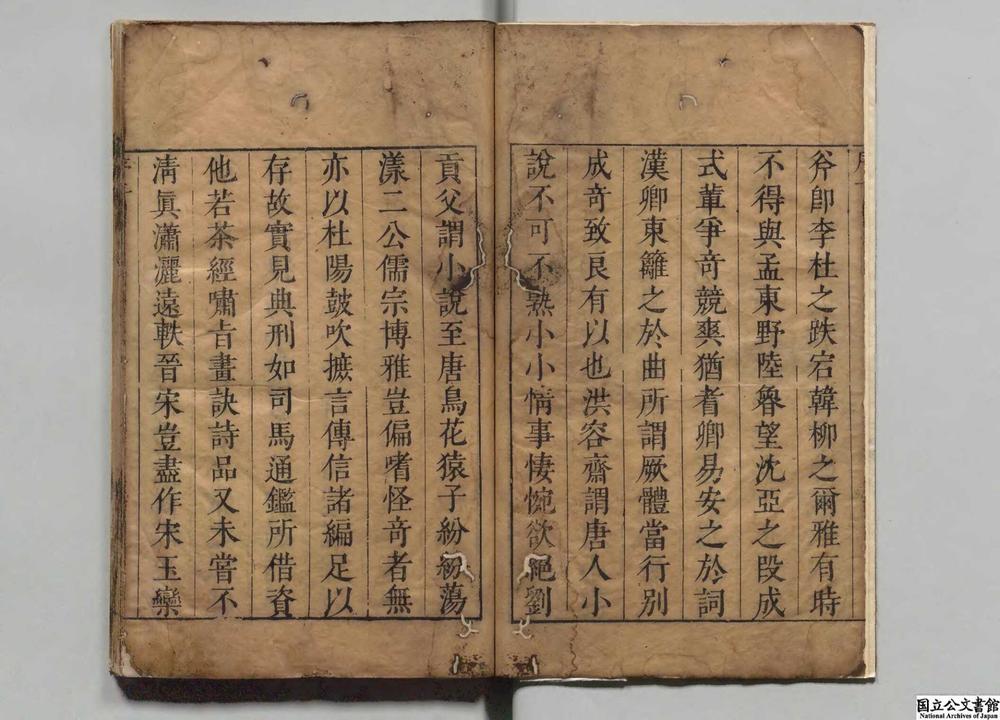 斧卽李杜之跌宕韓柳之爾雅有時
不得與孟東野陸魯望沈亞之段成
式軰爭奇競爽猶耆卿易安之於詞
漢卿東籬之於曲所謂厥體當行別
成奇致良有以也洪容齋謂唐人小
說不可不熟小小情事悽惋欲絕劉
貢父謂小說至唐鳥花猿子紛紛蕩
漾二公儒宗博雅豈偏嗜怪奇者無
亦以杜陽鼓吹摭言傳信諸編足以
存故實見典刑如司馬通鑑所借資
他若茶經嘯旨畫訣詩品又未嘗不
清眞瀟灑遠軼晉宋豈盡作宋玉欒
国立公文書館
National Archives of Japan